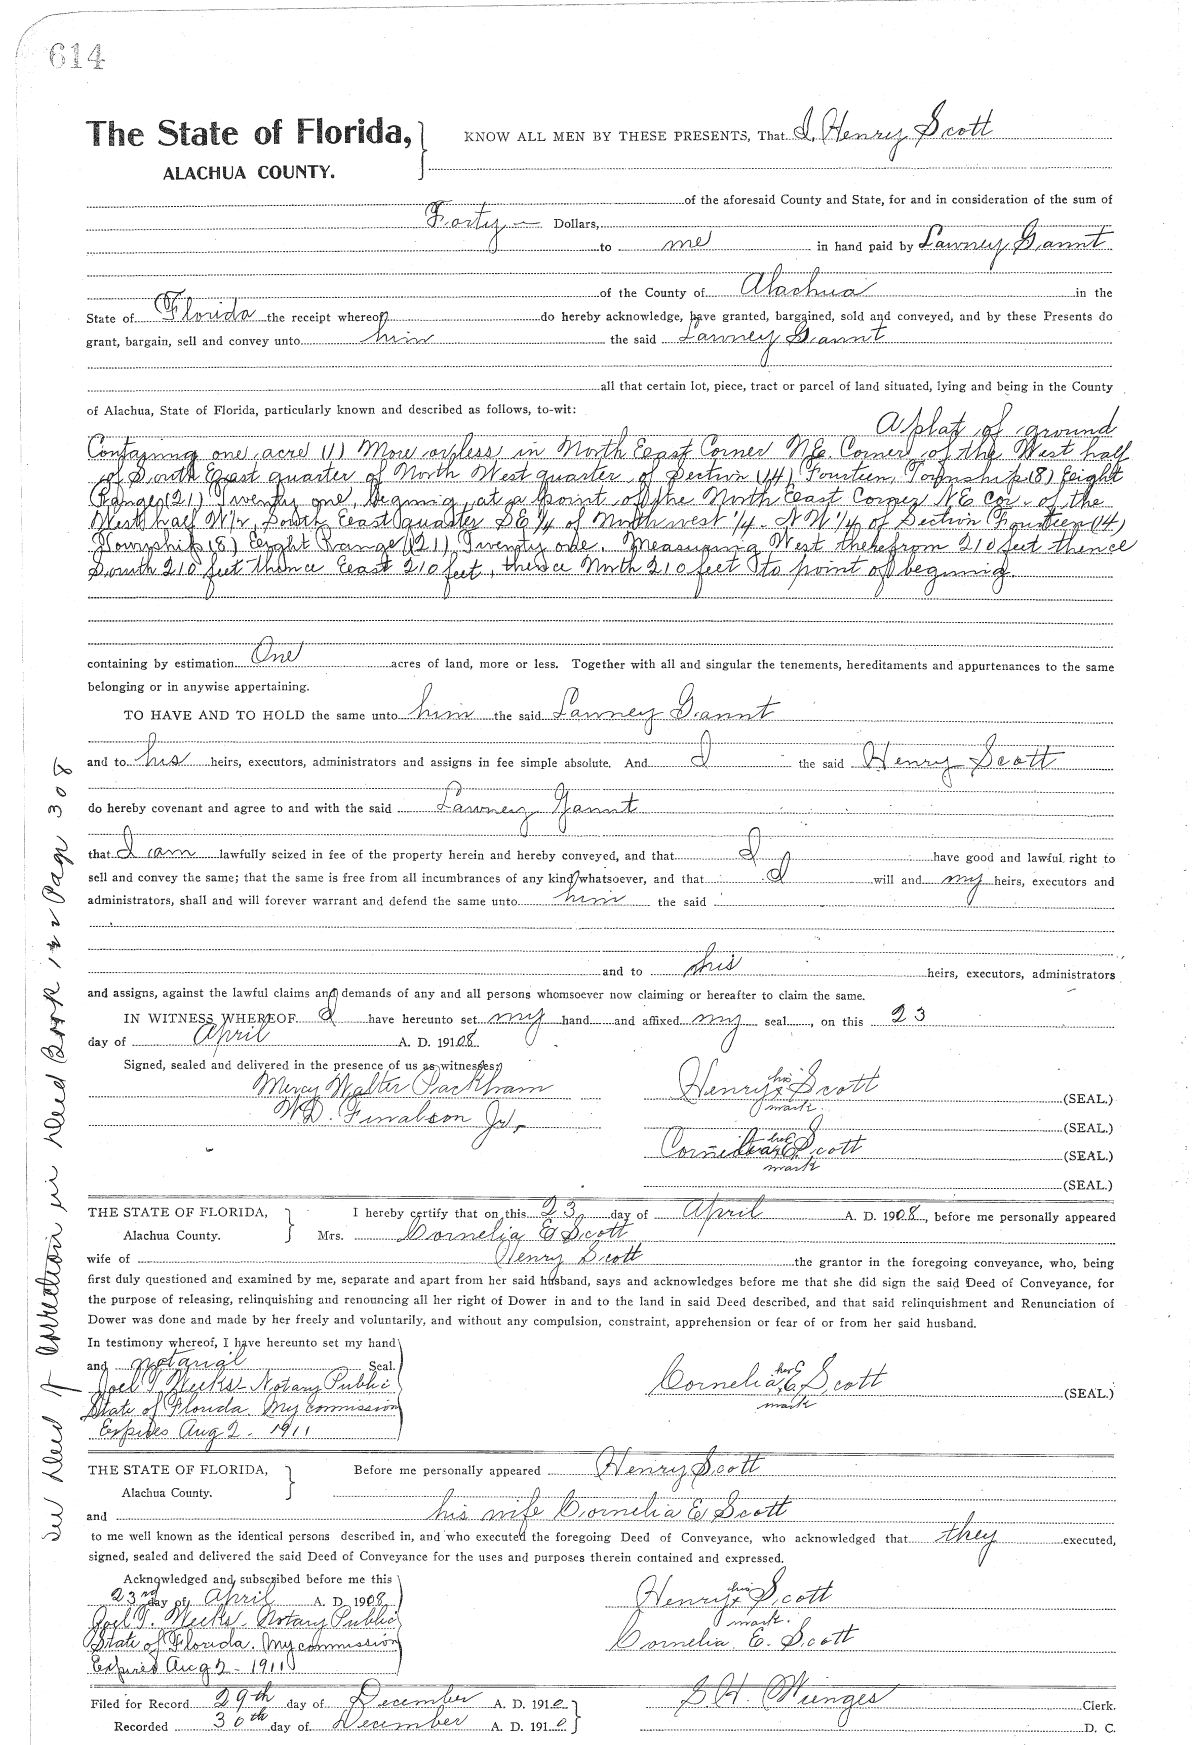 614
The State of Florida, KNOW ALL MEN BY THESE PRESENTS, That I, Henry Scott
ALACHUA COUNTY.
of the aforesaid County and State, for and in consideration of the sum of
Forty — Dollars,
to me in hand paid by Lawney Gannt
of the County of Alachua in the
State of Florida the receipt whereof do hereby acknowledge, have granted, bargained, sold and conveyed, and by these Presents do
grant, bargain, sell and convey unto him the said Lawney Gannt
all that certain lot, piece, tract or parcel of land situated, lying and being in the County
of Alachua, State of Florida, particularly known and described as follows, to-wit:
A plat of ground
Containing one acre (1) More or less in North East Corner N.E. Corner of the West half
of South East quarter of North West quarter of Section (14) Fourteen, Township (8) Eight
Range (21) Twenty one, begining at a point of the North East Corner NE cor. of the
West half W ½, South East quarter SE ¼ of Northwest ¼ - NW ¼ of Section Fourteen (14)
Township (8) Eight Range (21) Twenty one. Measuring West therefrom 210 feet thence
South 210 feet thence East 210 feet, thence North 210 feet to point of beginnig.
containing by estimation One acres of land, more or less. Together with all and singular the tenements, hereditaments and appurtenances to the same
belonging or in anywise appertaining.
TO HAVE AND TO HOLD the same unto him the said Lawney Gannt
and to his heirs, executors, administrators and assigns in fee simple absolute. And I the said Henry Scott
do hereby covenant and agree to and with the said Lawney Gannt
that I am lawfully seized in fee of the property herein and hereby conveyed, and that I have good and lawful right to
sell and convey the same; that the same is free from all incumbrances of any kind whatsoever, and that I will and my heirs, executors and
administrators, shall and will forever warrant and defend the same unto him the said
and to his heirs, executors, administrators
and assigns, against the lawful claims and demands of any and all persons whomsoever now claiming or hereafter to claim the same.
IN WITNESS WHEREOF I have hereunto set my hand and affixed my seal, on this 23
day of April A. D. 19108.
Signed, sealed and delivered in the presence of us as witnesses:
Mercy Walter Packham Henry his x mark Scott (SEAL.)
W.D. Finalson Jr. (SEAL.)
Cornelia her E mark Scott (SEAL.)
(SEAL.)
THE STATE OF FLORIDA, I hereby certify that on this 23 day of April A. D. 1908, before me personally appeared
Alachua County. Mrs. Cornelia E Scott
wife of Henry Scott the grantor in the foregoing conveyance, who, being
first duly questioned and examined by me, separate and apart from her said husband, says and acknowledges before me that she did sign the said Deed of Conveyance, for
the purpose of releasing, relinquishing and renouncing all her right of Dower in and to the land in said Deed described, and that said relinquishment and Renunciation of
Dower was done and made by her freely and voluntarily, and without any compulsion, constraint, apprehension or fear of or from her said husband.
In testimony whereof, I have hereunto set my hand
and notarial Seal.
Joel T. Weeks Notary Public Cornelia her E. mark Scott (SEAL.)
State of Florida. My commission
Expires Aug 2 - 1911
THE STATE OF FLORIDA, Before me personally appeared Henry Scott
Alachua County.
and his wife Cornelia E Scott
to me well known as the identical persons described in, and who executed the foregoing Deed of Conveyance, who acknowledged that they executed,
signed, sealed and delivered the said Deed of Conveyance for the uses and purposes therein contained and expressed.
Acknowledged and subscribed before me this
23rd day of April A. D. 1908, Henry his x mark. Scott
Joel T. Weeks. Notary Public
State of Florida. My commission Cornelia. E. Scott
Expires Aug 2 - 1911
Filed for Record 29th day of December A. D. 1910 S. H. Wienges Clerk.
Recorded 30th day of December A. D. 1910 D. C.
See Deed of Correction in Deed Book 122 Page 308